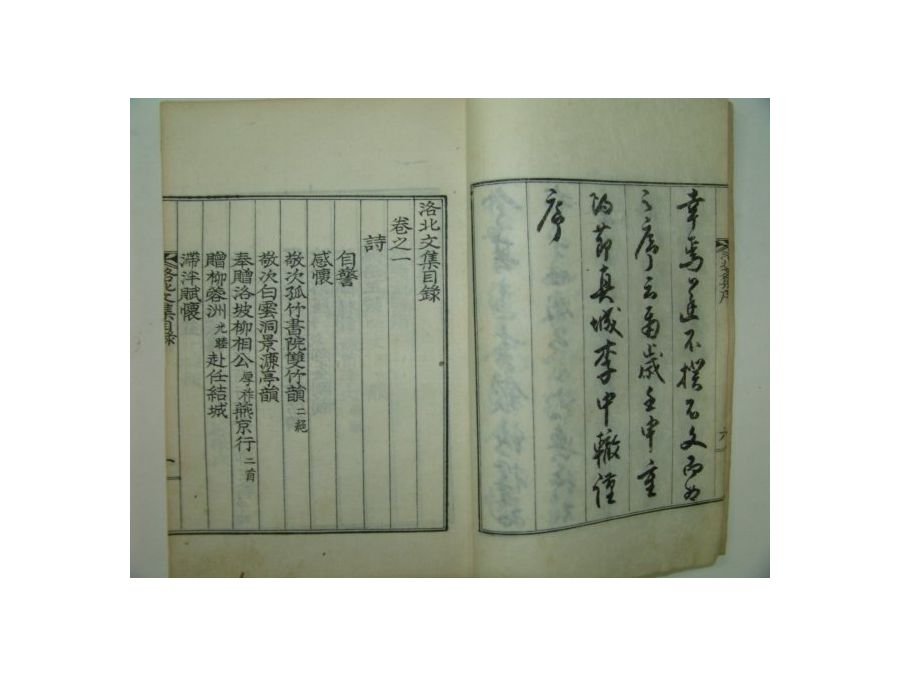 幸焉遂不揆為文而為
之序云爾歲壬申重
陽節真城李中轍謹
序
洛北文集目錄
卷之一
詩
自警
感懷
敬次孤竹書院雙竹韻 二絕
敬次白雲洞景濂亭韻
奉贈洛坡柳相公 厚祚 燕京行 二首
贈柳蓉洲 光睦 赴任結城
滯泮賦懷
洛北文集目錄
一